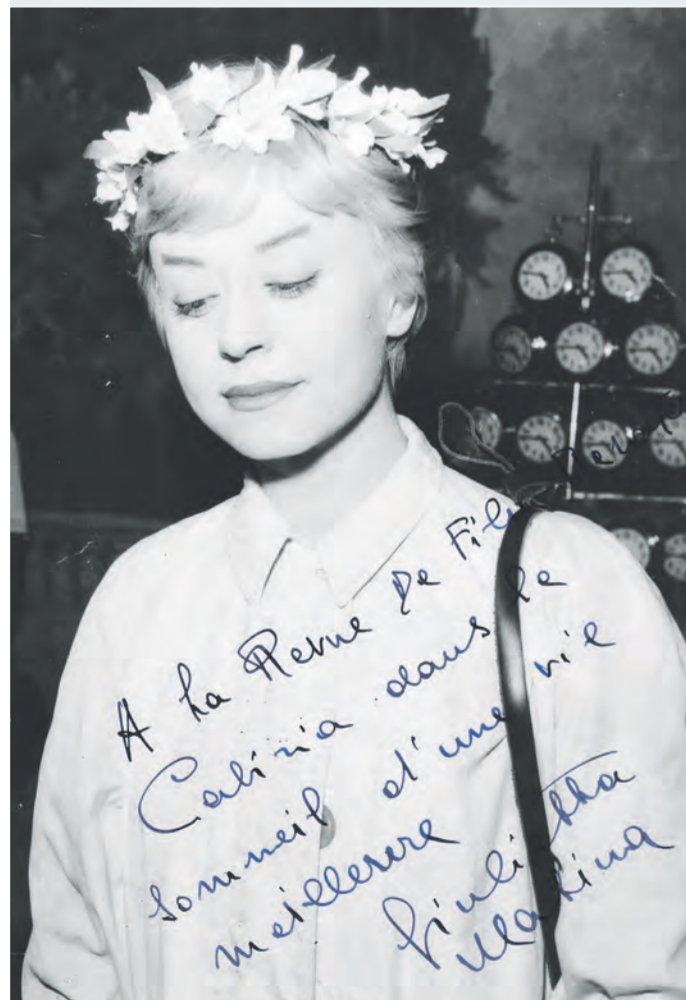 A La Revue De Film
Cabiria dans le
sommeil d'une vie
meilleure
Giulietta
Masina